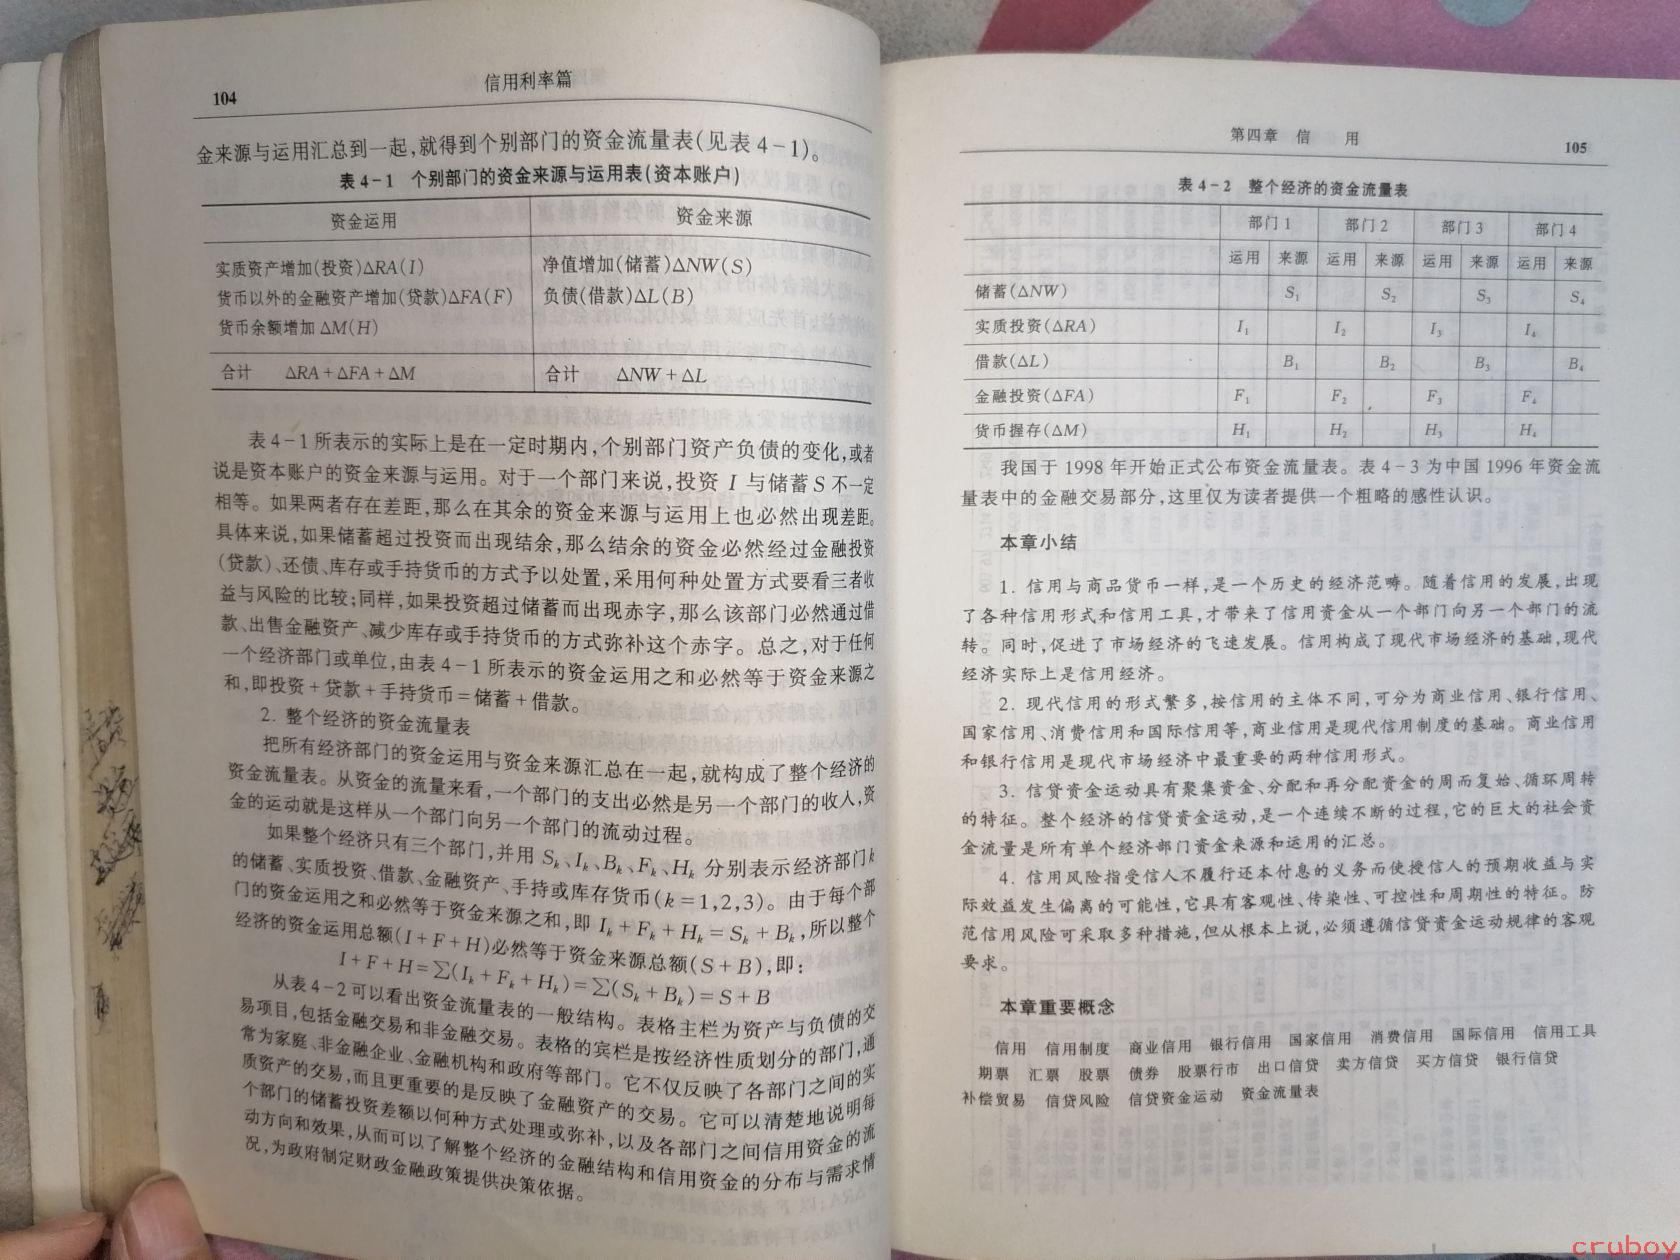 104
信用利率篇
金来源与运用汇总到一起,就得到个别部门的资金流量表(见表4-1)。
表4-1 个别部门的资金来源与运用表(资本账户)
资金运用 资金来源
实质资产增加(投资)△RA(I) 净值增加(储蓄)△NW(S)
货币以外的金融资产增加(贷款)△FA(F) 负债(借款)△L(B)
货币余额增加△M(H)
合计 △RA+△FA+△M 合计 △NW+△L
表4-1所表示的实际上是在一定时期内,个别部门资产负债的变化,或者
说是资本账户的资金来源与运用。对于一个部门来说,投资 I 与储蓄S不一定
相等。如果两者存在差距,那么在其余的资金来源与运用上也必然出现差距。
具体来说,如果储蓄超过投资而出现结余,那么结余的资金必然经过金融投资
(贷款)、还债、库存或手持货币的方式予以处置,采用何种处置方式要看三者收
益与风险的比较;同样,如果投资超过储蓄而出现赤字,那么该部门必然通过借
款、出售金融资产、减少库存或手持货币的方式弥补这个赤字。总之,对于任何
一个经济部门或单位,由表4-1所表示的资金运用之和必然等于资金来源之
和,即投资+贷款+手持货币=储蓄+借款。
2. 整个经济的资金流量表
把所有经济部门的资金运用与资金来源汇总在一起,就构成了整个经济的
资金流量表。从资金的流量来看,一个部门的支出必然是另一个部门的收人,资
金的运动就是这样从一个部门向另一个部门的流动过程。
如果整个经济只有三个部门,并用 Sk、Ik、Bk、Fk、Hk 分别表示经济部门k
的储蓄、实质投资、借款、金融资产、手持或库存货币(k=1,2,3)。由于每个部
门的资金运用之和必然等于资金来源之和,即 Ik+Fk+Hk=Sk+Bk,所以整个
经济的资金运用总额(I+F+H)必然等于资金来源总额(S+B),即:
I+F+H=∑(Ik+Fk+Hk)=∑(Sk+Bk)=S+B
从表4-2可以看出资金流量表的一般结构。表格主栏为资产与负债的交
易项目,包括金融交易和非金融交易。表格的宾栏是按经济性质划分的部门,通
常为家庭、非金融企业、金融机构和政府等部门。它不仅反映了各部门之间的实
质资产的交易,而且更重要的是反映了金融资产的交易。它可以清楚地说明每
个部门的储蓄投资差额以何种方式处理或弥补,以及各部门之间信用资金的流
动方向和效果,从而可以了解整个经济的金融结构和信用资金的分布与需求情
况,为政府制定财政金融政策提供决策依据。
第四章 信 用
105
表4-2 整个经济的资金流量表
部门1 部门2 部门3 部门4
运用 来源 运用 来源 运用 来源 运用 来源
储蓄(△NW) S1 S2 S3 S4
实质投资(△RA) I1 I2 I3 I4
借款(△L) B1 B2 B3 B4
金融投资(△FA) F1 F2 F3 F4
货币握存(△M) H1 H2 H3 H4
我国于1998年开始正式公布资金流量表。表4-3为中国1996年资金流
量表中的金融交易部分,这里仅为读者提供一个粗略的感性认识。
本章小结
1. 信用与商品货币一样,是一个历史的经济范畴。随着信用的发展,出现
了各种信用形式和信用工具,才带来了信用资金从一个部门向另一个部门的流
转。同时,促进了市场经济的飞速发展。信用构成了现代市场经济的基础,现代
经济实际上是信用经济。
2. 现代信用的形式繁多,按信用的主体不同,可分为商业信用、银行信用、
国家信用、消费信用和国际信用等,商业信用是现代信用制度的基础。商业信用
和银行信用是现代市场经济中最重要的两种信用形式。
3. 信贷资金运动具有聚集资金、分配和再分配资金的周而复始、循环周转
的特征。整个经济的信贷资金运动,是一个连续不断的过程,它的巨大的社会资
金流量是所有单个经济部门资金来源和运用的汇总。
4. 信用风险指受信人不履行还本付息的义务而使授信人的预期收益与实
际效益发生偏离的可能性,它具有客观性、传染性、可控性和周期性的特征。防
范信用风险可采取多种措施,但从根本上说,必须遵循信贷资金运动规律的客观
要求。
本章重要概念
信用 信用制度 商业信用 银行信用 国家信用 消费信用 国际信用 信用工具
期票 汇票 股票 债券 股票行市 出口信贷 卖方信贷 买方信贷 银行信贷
补偿贸易 信贷风险 信贷资金运动 资金流量表
cruboy